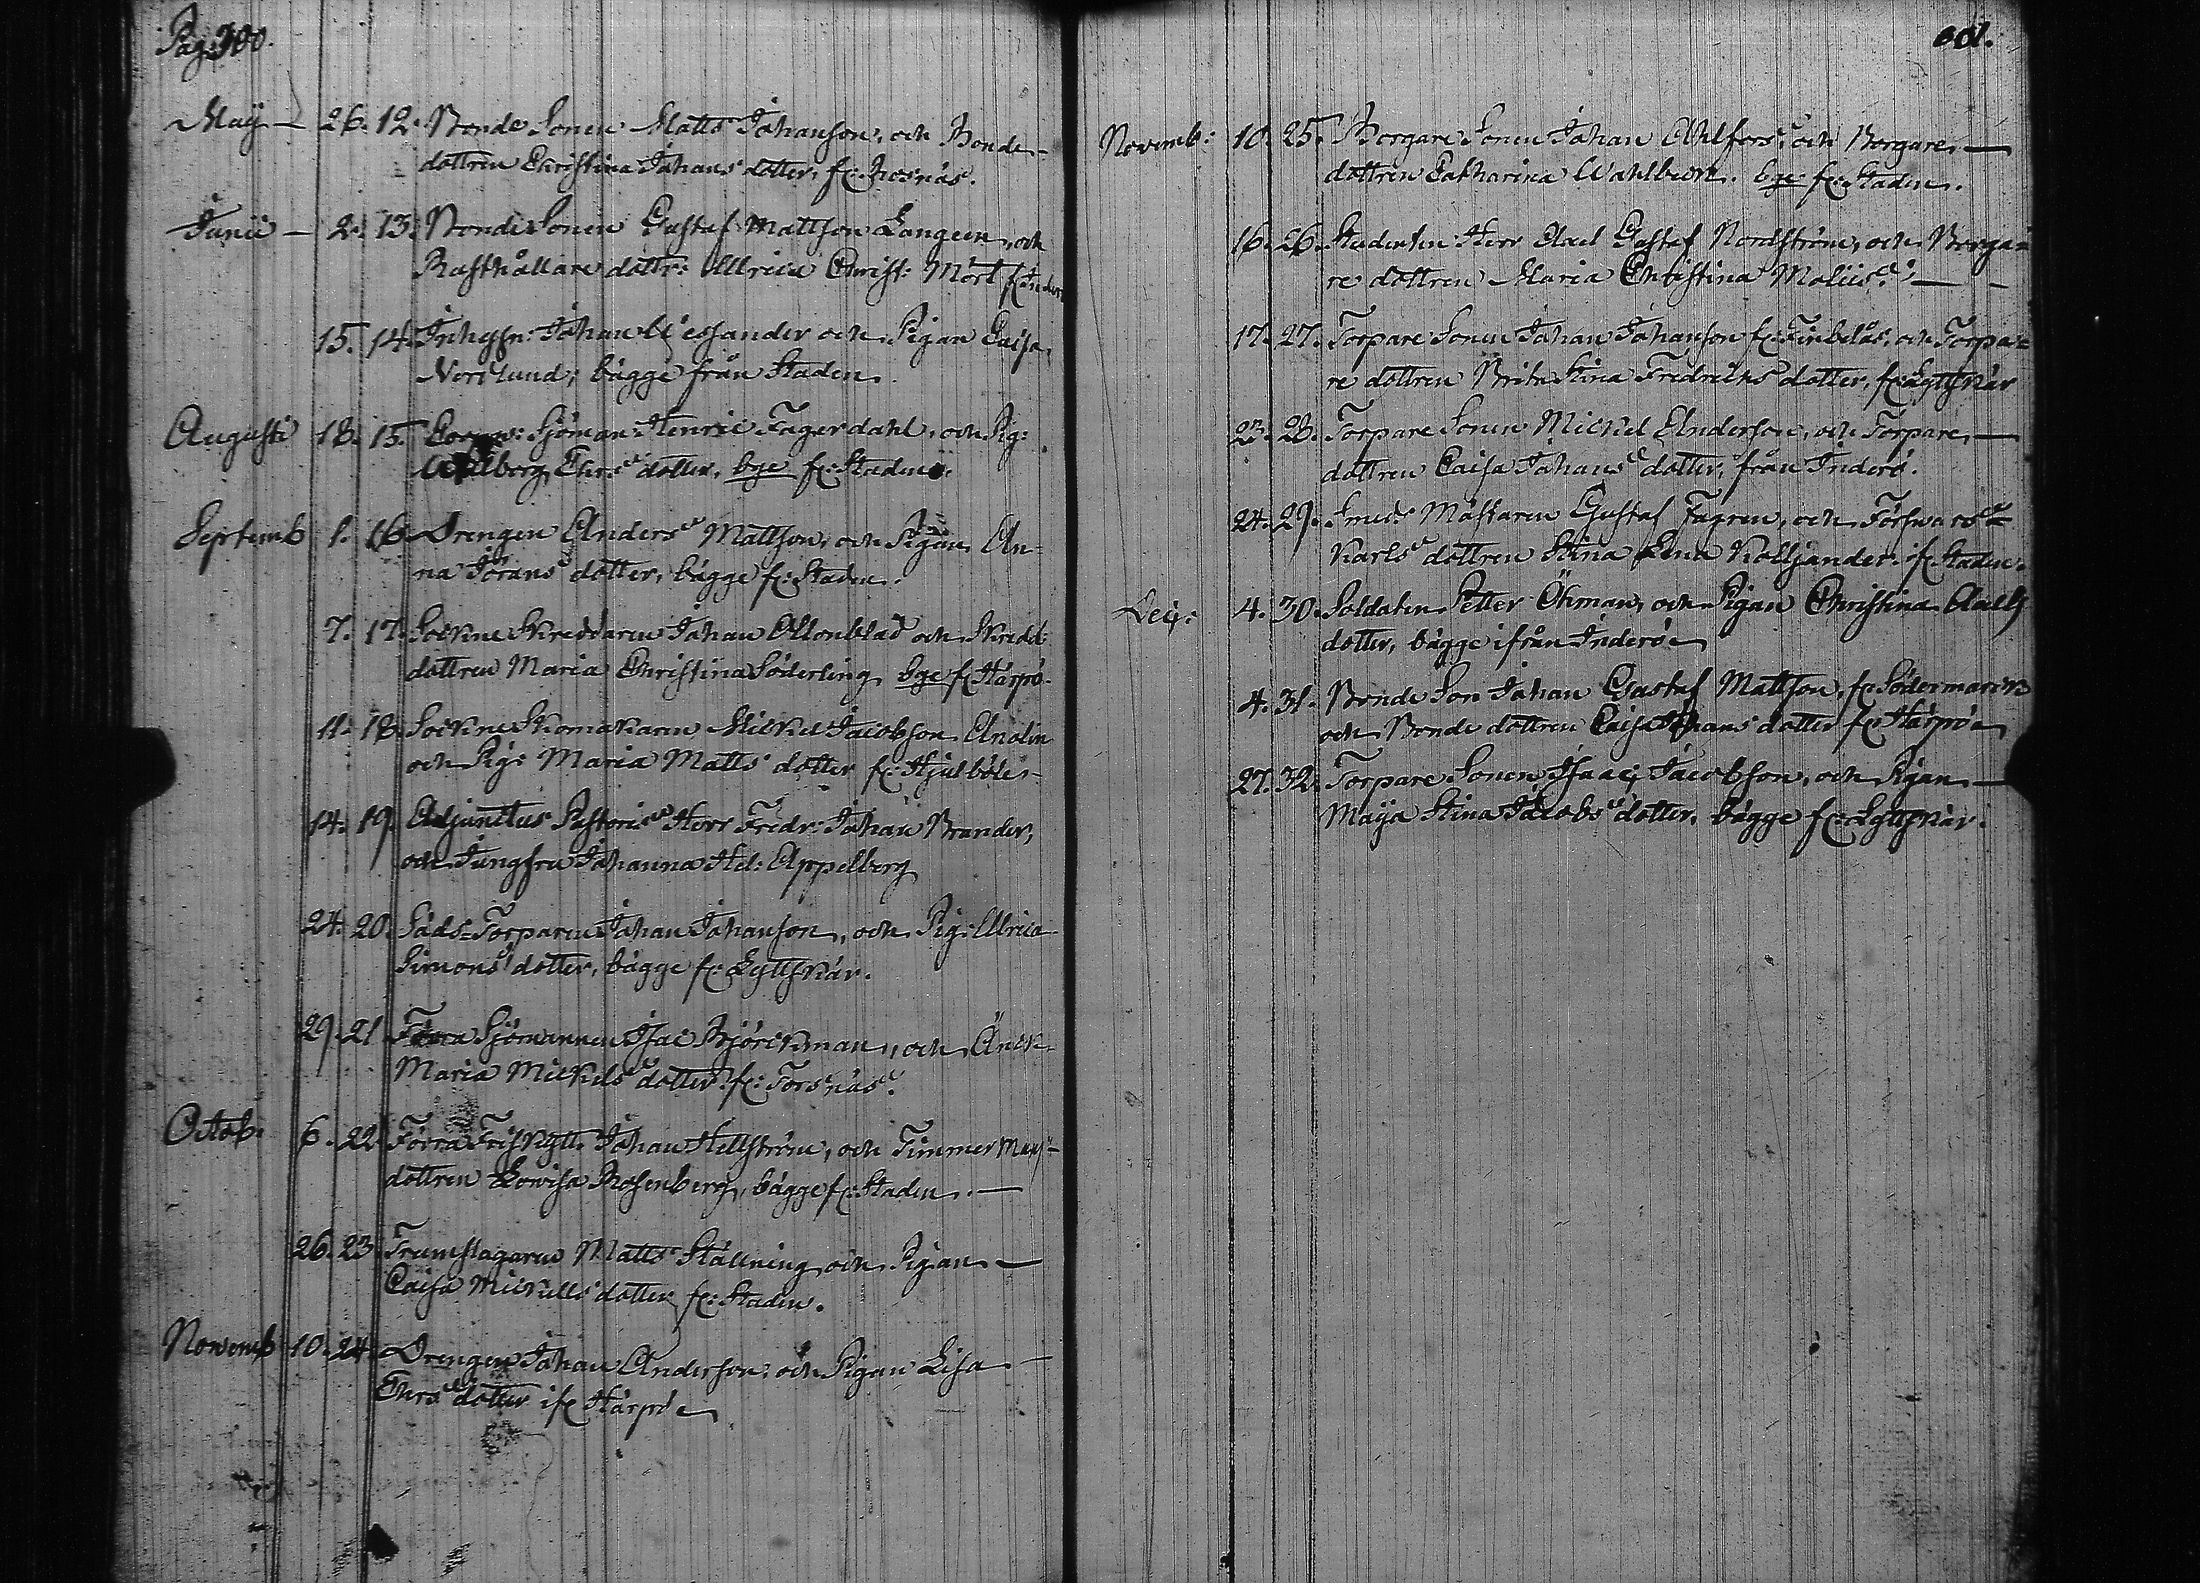 Pag: 300.
Maÿ — 26. 12. Bonde Sonen Matts Johanson, och Bonde-
dottren Christina Johans dotter, fr: Rosnäs.
Junii — 2. 13. Bonde Sonen Gustaf Mattson Langeen, och
Rusthållare dottr: Ulrica Christ: Mört fr:
15. 14. Inhysn: Johan Wessander och Pigan Caisa
Norlund; bägge från Staden.
Augusti 18. 15. Sjöman Henric Fagerdahl, och Pig:
Ehrs dotter, bge fr: Staden.
Septemb 1. 16. Drengen Anders Mattson, och Pigan An-
na Jörans dotter, bägge fr: Staden.
7. 17. Sockne Skreddaren Johan Allonblad och Skredd:
dottren Maria Christina Söderling, bge fr Härpö.
11. 18. Sockne Skomakaren Mickel Jacobson Anolin
och Pig: Maria Matts dotter fr: Hjulböle
14. 19. Adjunctus Pastoris Herr Fredr: Johan Brander,
och Jungfru Johanna Hel: Appelberg
24. 20. Säds-Torparen Johan Johanson, och Pig: Ulrica
Simons dotter, bägge fr: Lyttskär.
29. 21 Förra Sjömannen Isac Björckman, och Änck
Maria Mickels dotter fr: Torsnäs.
Octob: 6. 22 Förra Friskytt: Johan Hellström, och Timmer Mans
dottren Lowisa Rosenberg, bägge fr: Staden. —
26. 23 Trumslagaren Matts Ställning och Pigan —
Caisa Mickells dotter fr: Staden.
Novemb 10. 24. Drengen Johan Anderson, och Pigan Lisa —
Ehrs dotter ifr Härpö
301.
Novemb: 10. 25. Borgare Sonen Johan Ahlfors, och Borgare —
dottren Catharina Wahlbeck. bge fr: Staden.
16. 26. Studenten Herr Axel Gustaf Nordström, och Borga=
re dottren Maria Christina Moliis. —
17. 27. Torpare Sonen Johan Johanson fr: och Torpa=
re dottren Brita Stina Fredricks dotter, fr: Lyttskär
23. 28. Torpare Sonen Mickel Anderson, och Torpare —
dottren Caisa Johans dotter, från Inderö.
24. 29. Smeds Mästaren Gustaf Fagren, och Försvars=
Karls dottren Stina Lena Kolljander. ifr. Staden.
4. 30. Soldaten Petter Öhman, och Pigan Christina Axels
dotter, bägge ifrån Inderö
4. 31. Bonde Son Johan Gustaf Mattson, fr: Södermarck
och Bonde dottren Caisa Johans dotter fr: Härpö
27. 32. Torpare Sonen Isaac Jacobson, och Pigan —
Maija Stina Jacobs dotter, bägge fr: Lyttskär.